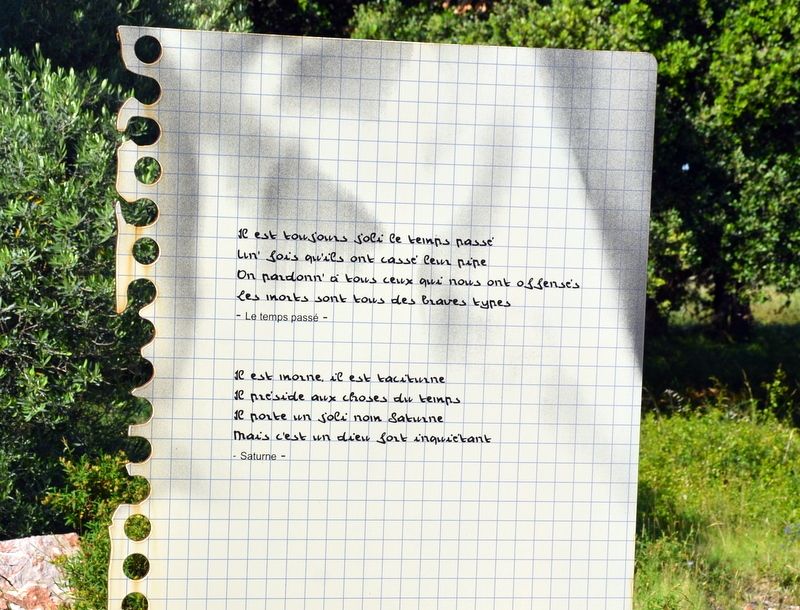 Il est toujours joli le temps passé
Un' fois qu'ils ont cassé leur pipe
On pardonn' à tous ceux qui nous ont offensés
Les morts sont tous des braves types
- Le temps passé -
Il est morne, il est taciturne
Il préside aux choses du temps
Il porte un joli nom Saturne
Mais c'est un dieu fort inquiétant
- Saturne -